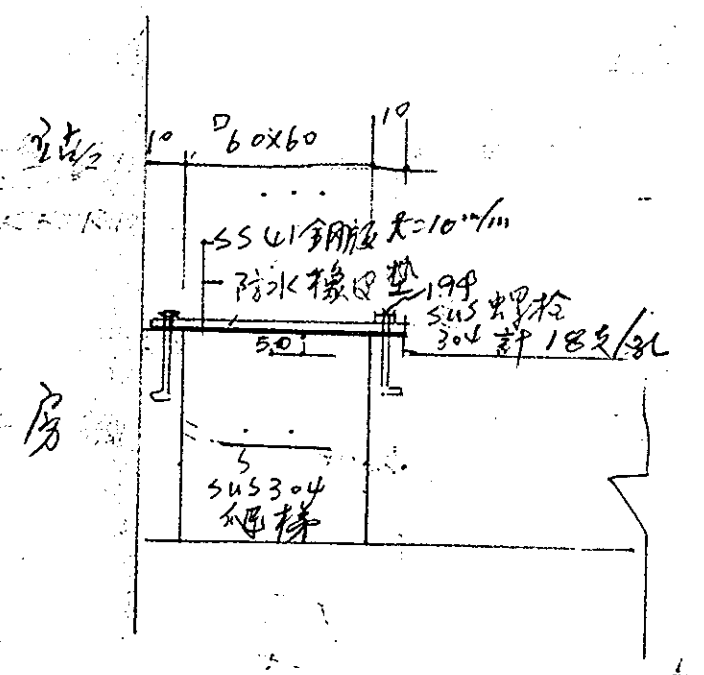 10 □60×60 10
SS41鋼版 t=10m/m
防水橡皮墊
19φ
SUS 螺栓
304 計 18支/孔
50
房
SUS304
爬梯